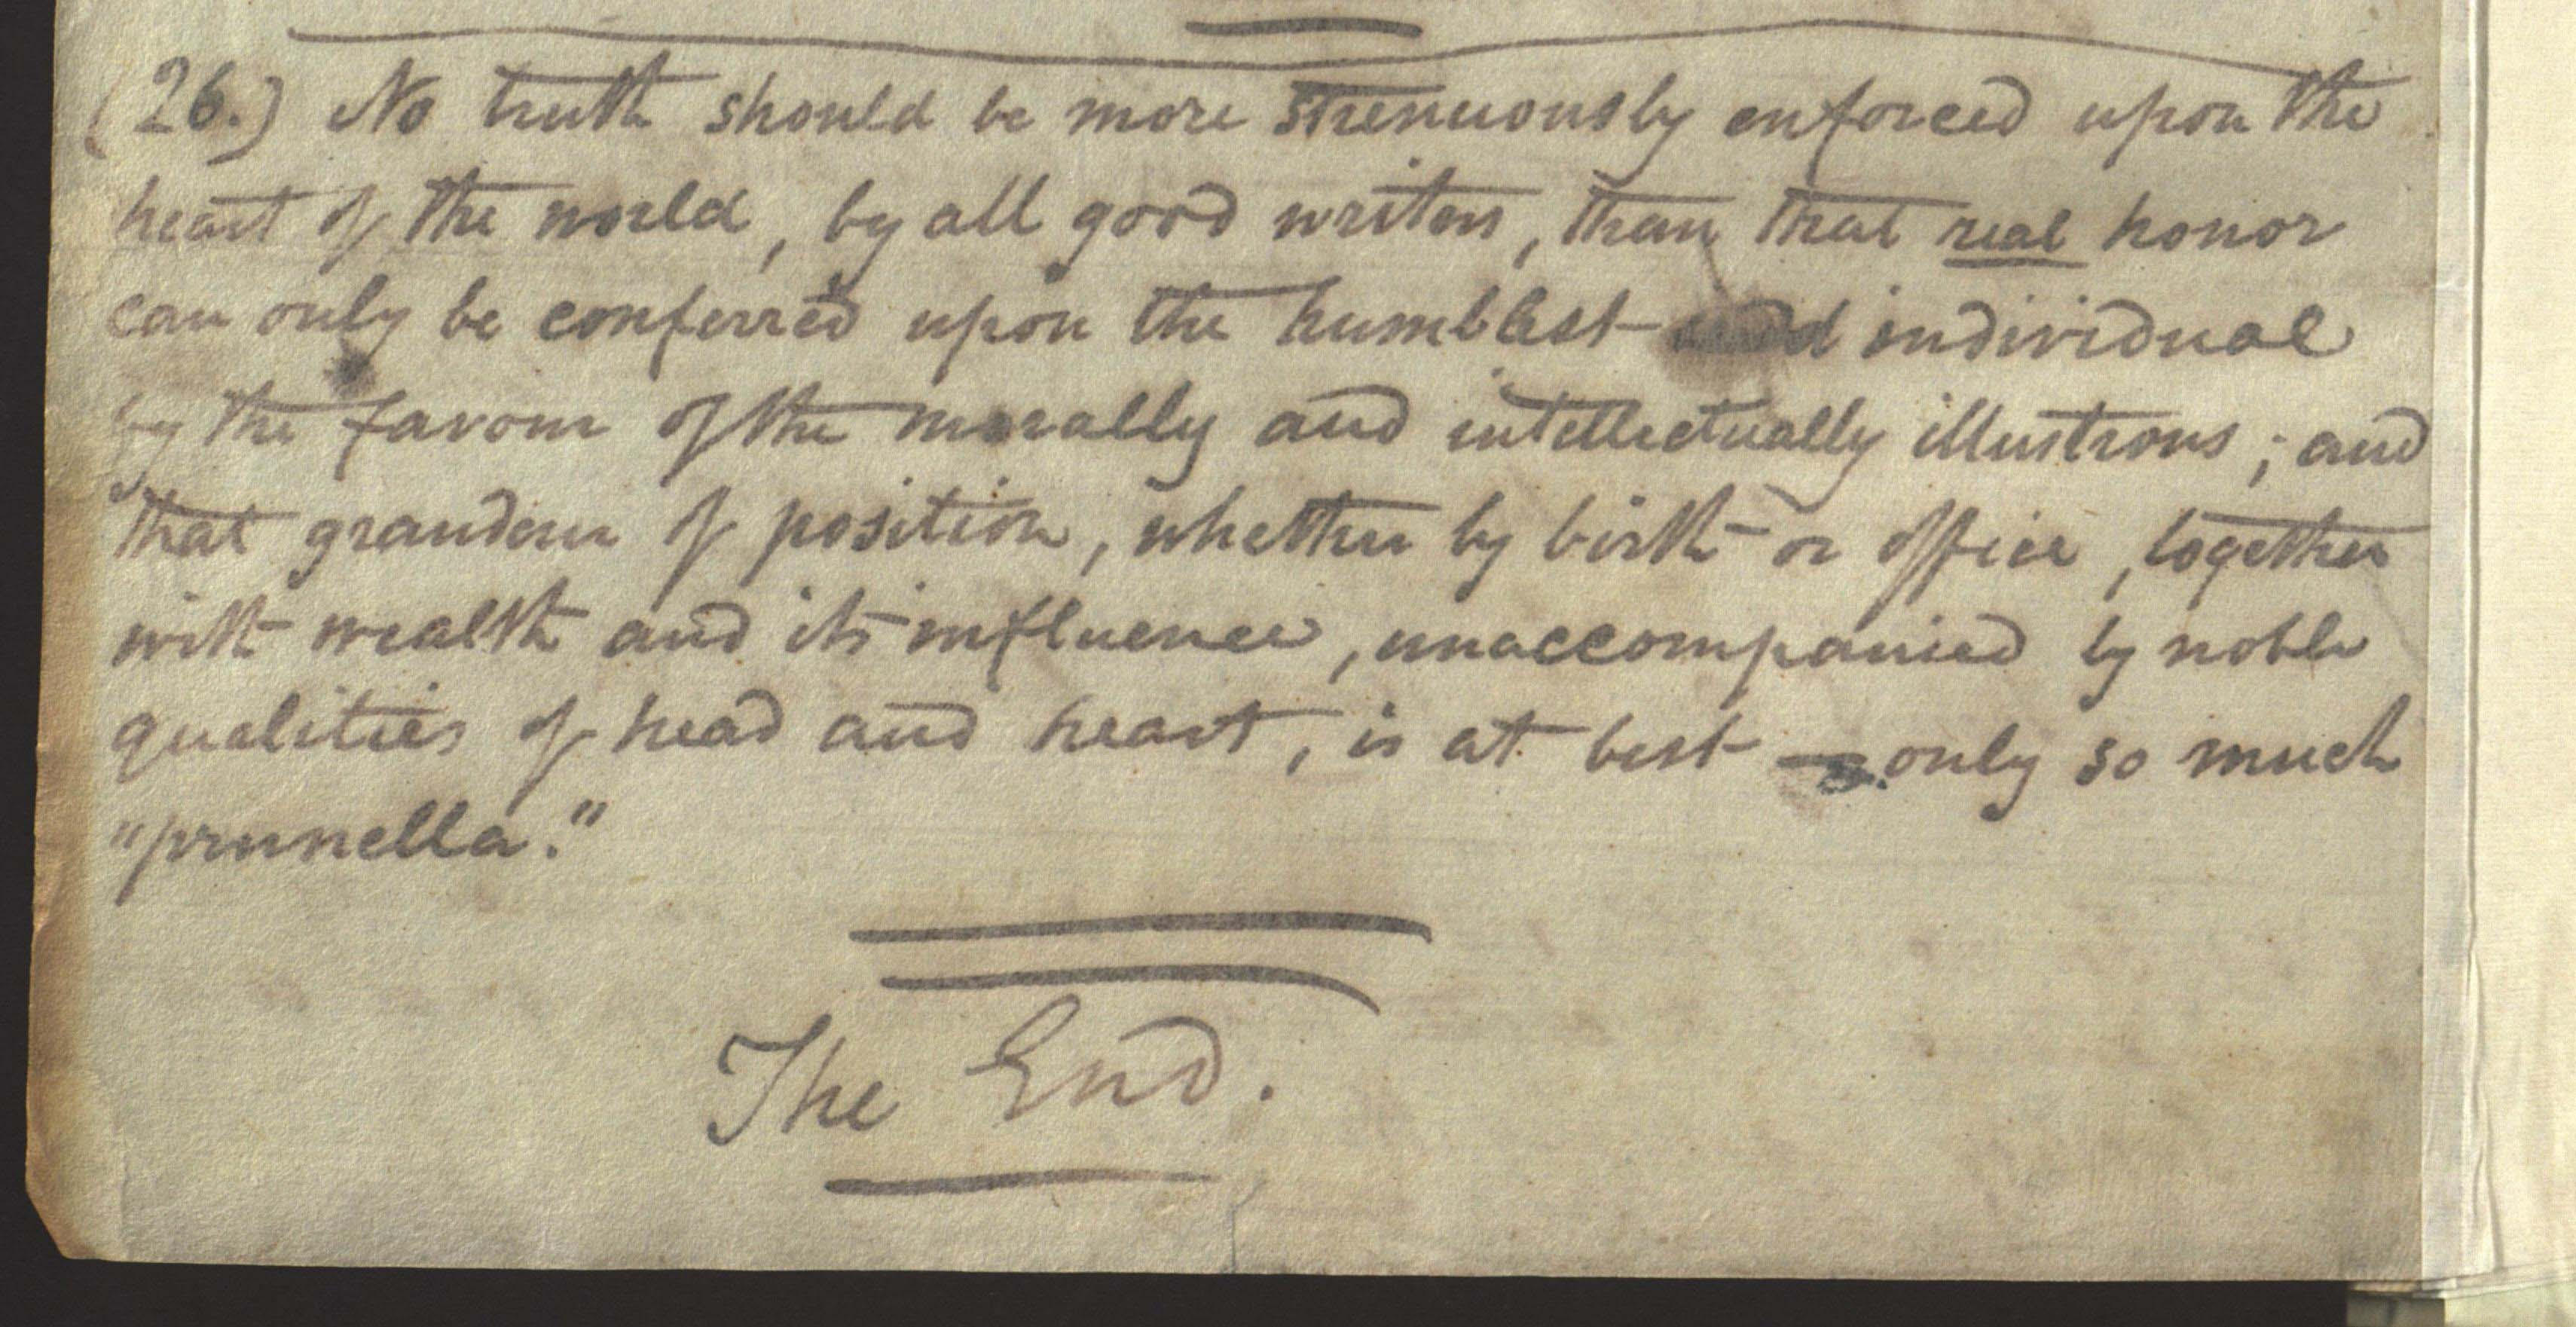 (26.) No truth should be more strenuously enforced upon the
heart of the world, by all good writers, than that real honor
can only be conferred upon the humblest individual
by the favour of the morally and intellectually illustrious; and
that grandeur of position, whether by birth or office, together
with wealth and its influence, unaccompanied by noble
qualities of head and heart, is at best — only so much
"prunella."
The End.